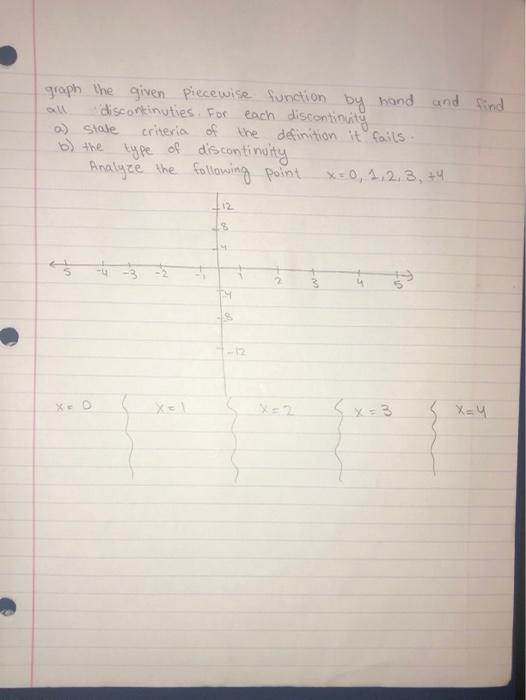 graph the given piecewise function by hand and find
all discontinuties. For each discontinuity
a) state criteria of the definition it fails.
b) the type of discontinuity
Analyze the following point x=0, 1, 2, 3, +4
12
8
4
5 -4 -3 -2 -1 1 2 3 4 5
-4
-8
-12
x=0 x=1 x=2 x=3 x=4